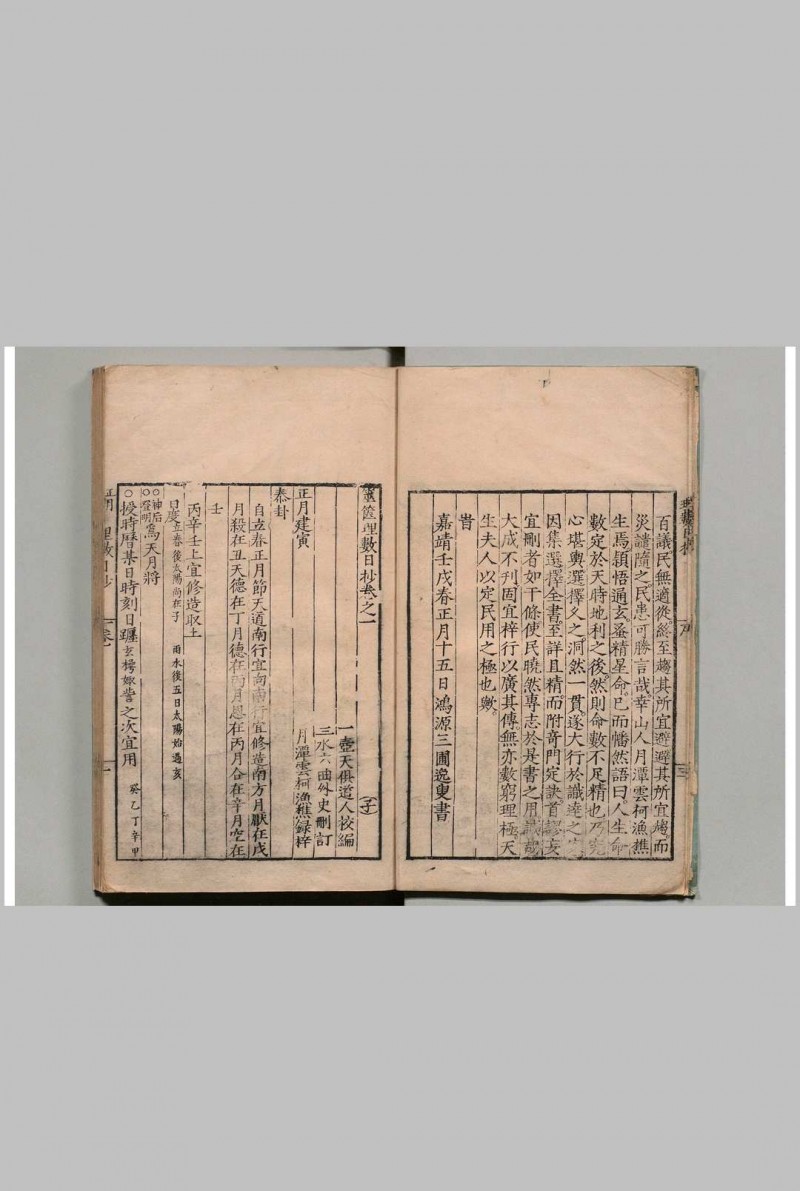 百議民無適從終至趨其所宜避避其所宜趨而
災譴隨之民患可勝言哉幸山人月潭雲柯漁樵
生焉穎悟通玄蚤精星命已而幡然語曰人生命
數定於天時地利之後然則命數不足精也乃究
心堪輿選擇久之洞然一貫遂大行於識達之
因集選擇全書至詳且精而附奇門定訣首謬妄
宜剛者如干條使民曉然專志於是書之用
大成不刊固宜梓行以廣其傳無亦數窮理極天
生夫人以定民用之極也歟
旹
嘉靖壬戌春正月十五日鴻源三圃逸叟書
理數日抄卷之一
一壺天俱道人校編
三水六曲外史刪訂
月潭雲柯漁樵録梓
正月建寅
泰卦
自立春正月節天道南行宜向南行宜修造南方月厭在戌
月殺在丑天德在丁月德在丙月恩在丙月合在辛月空在
壬
丙辛壬上宜修造取土
日度立春後太陽尚在子 雨水後五日太陽始過亥
○神后○登明為天月將
○授時曆某日時刻日躔玄枵娵訾之次宜用 癸乙丁辛甲